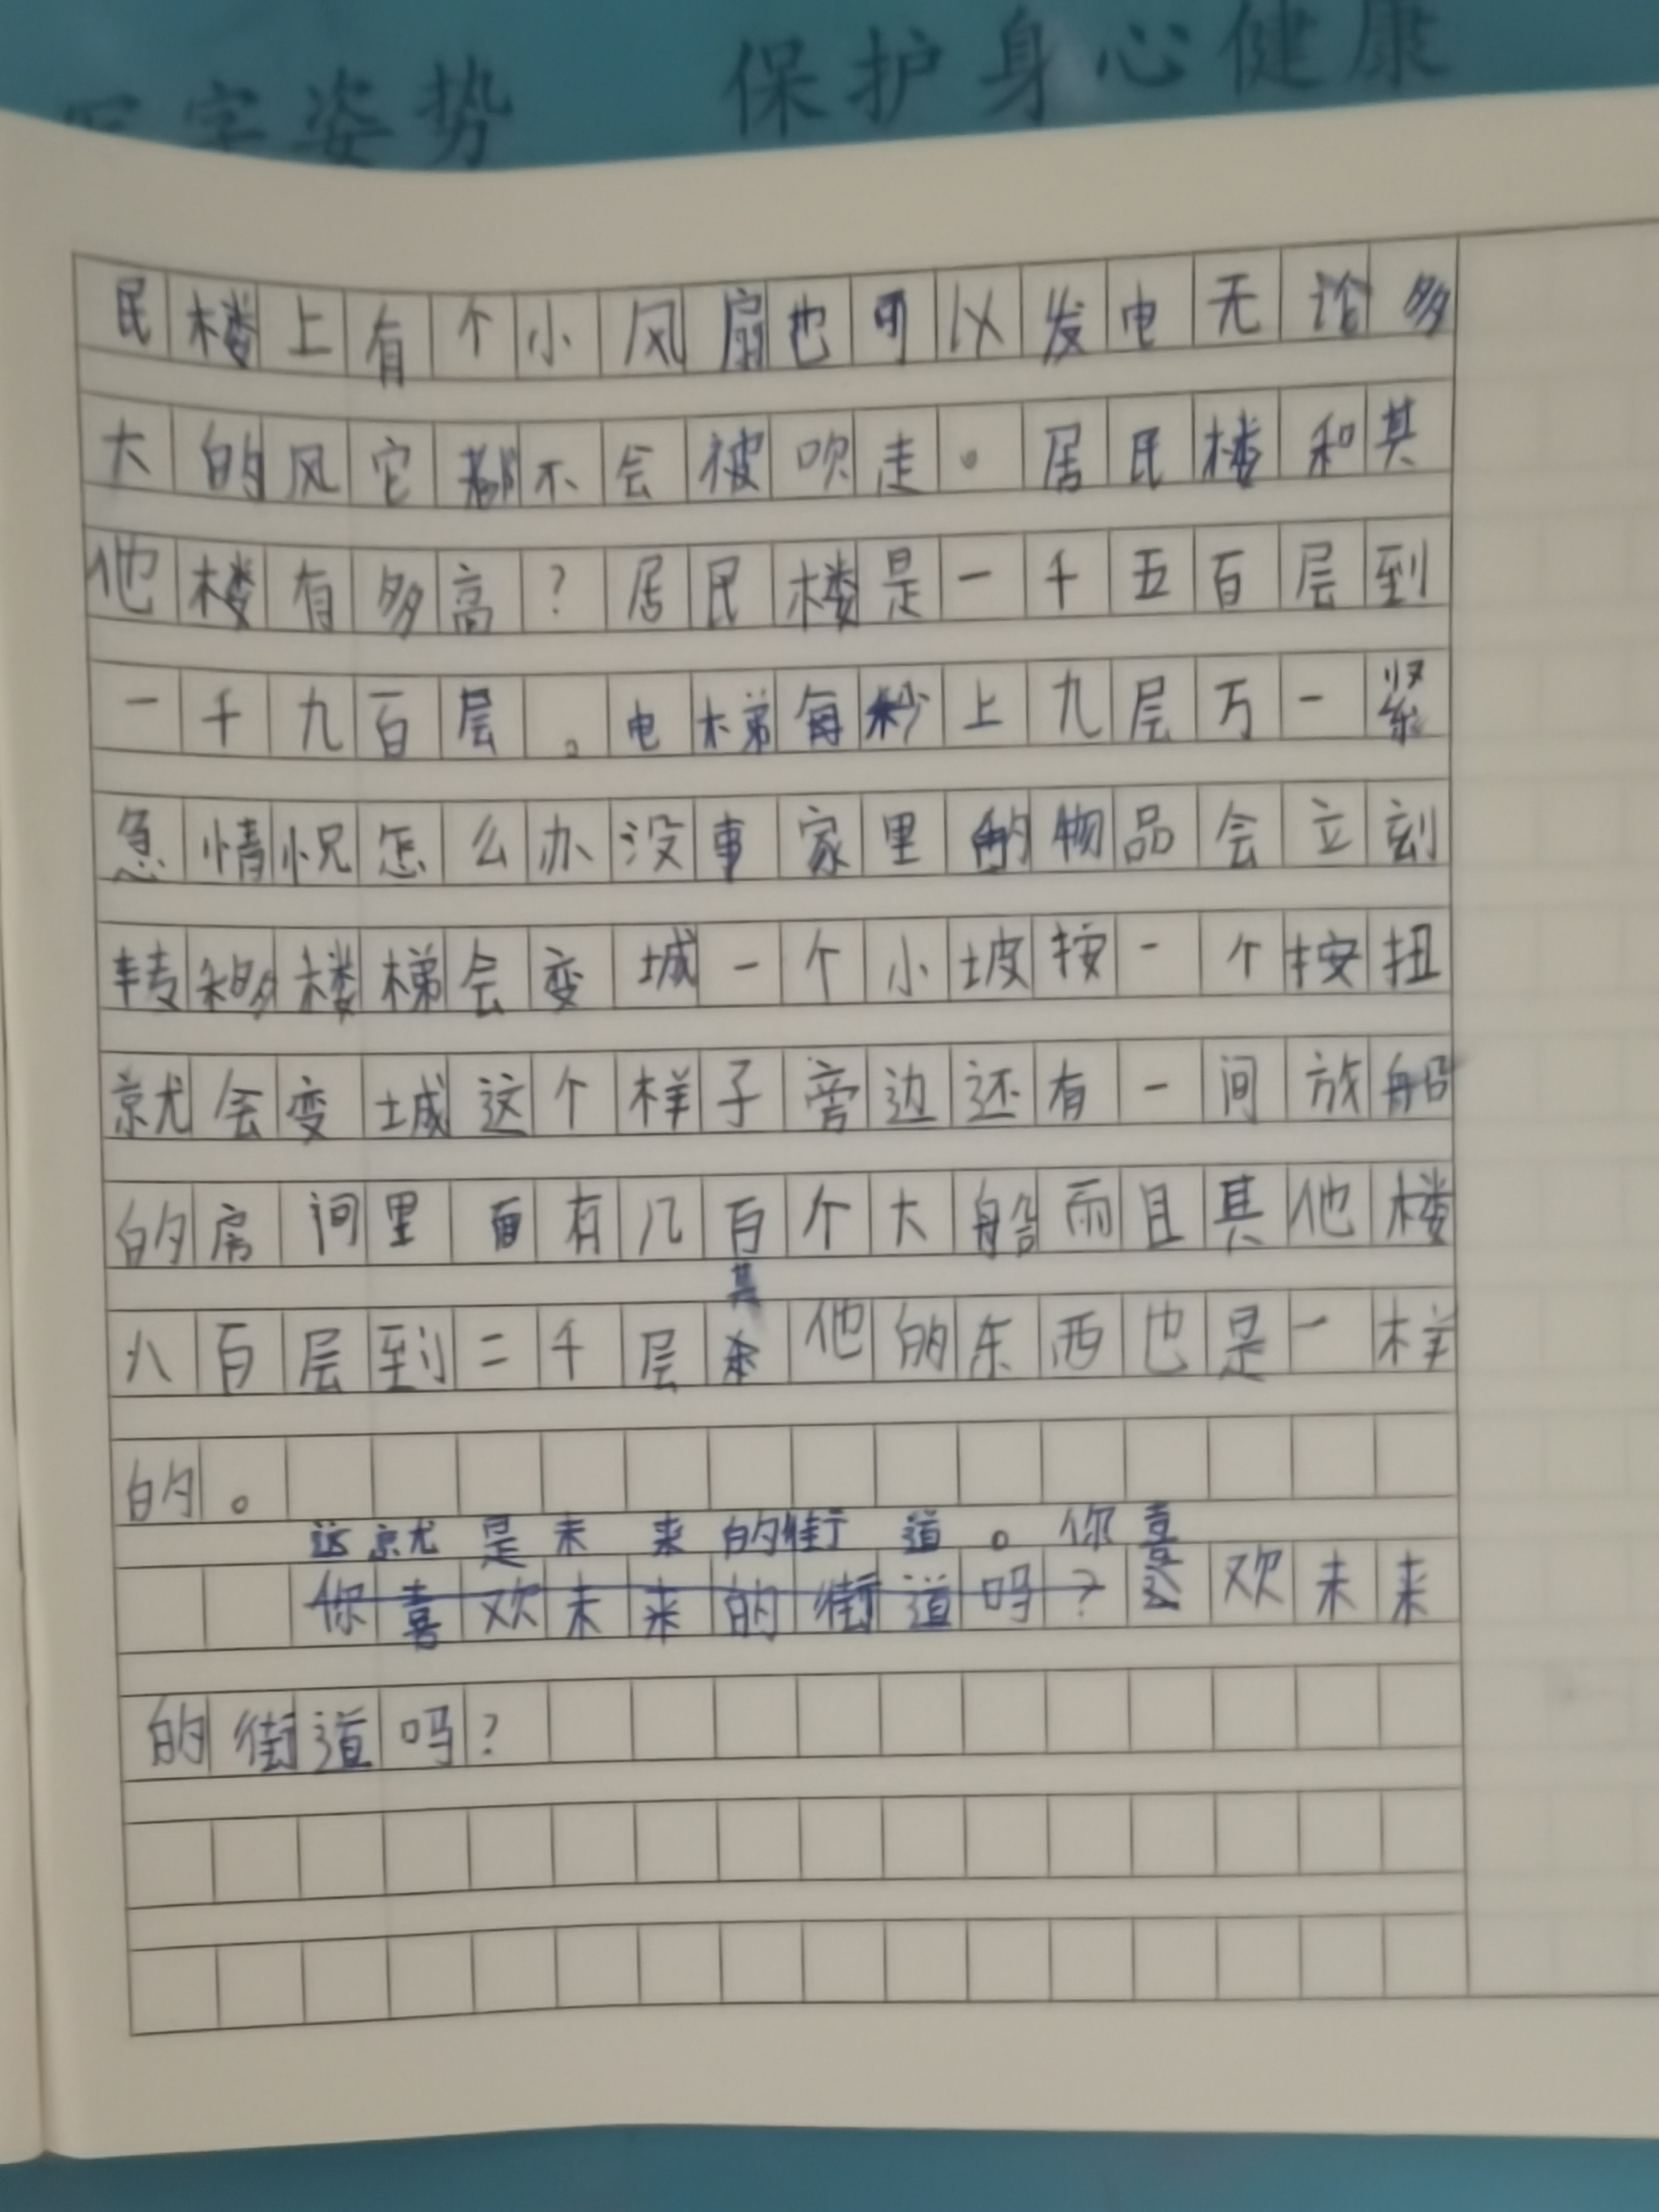 写字姿势 保护身心健康
民楼上有个小风扇也可以发电无论多
大的风它都不会被吹走。居民楼和其
他楼有多高？居民楼是一千五百层到
一千九百层。电梯每秒上九层万一紧
急情况怎么办没事家里的物品会立刻
转移楼梯会变城一个小坡按一个按扭
就会变城这个样子旁边还有一间放船
的房间里面有几百个大船而且其他楼
八百层到二千层其他的东西也是一样
的。
这就是未来的街道。你喜
你喜欢未来的街道吗？欢未来
的街道吗？